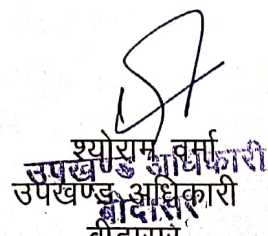 श्योराम वर्मा
उपखण्ड अधिकारी
उपखण्ड अधिकारी
बीदासर